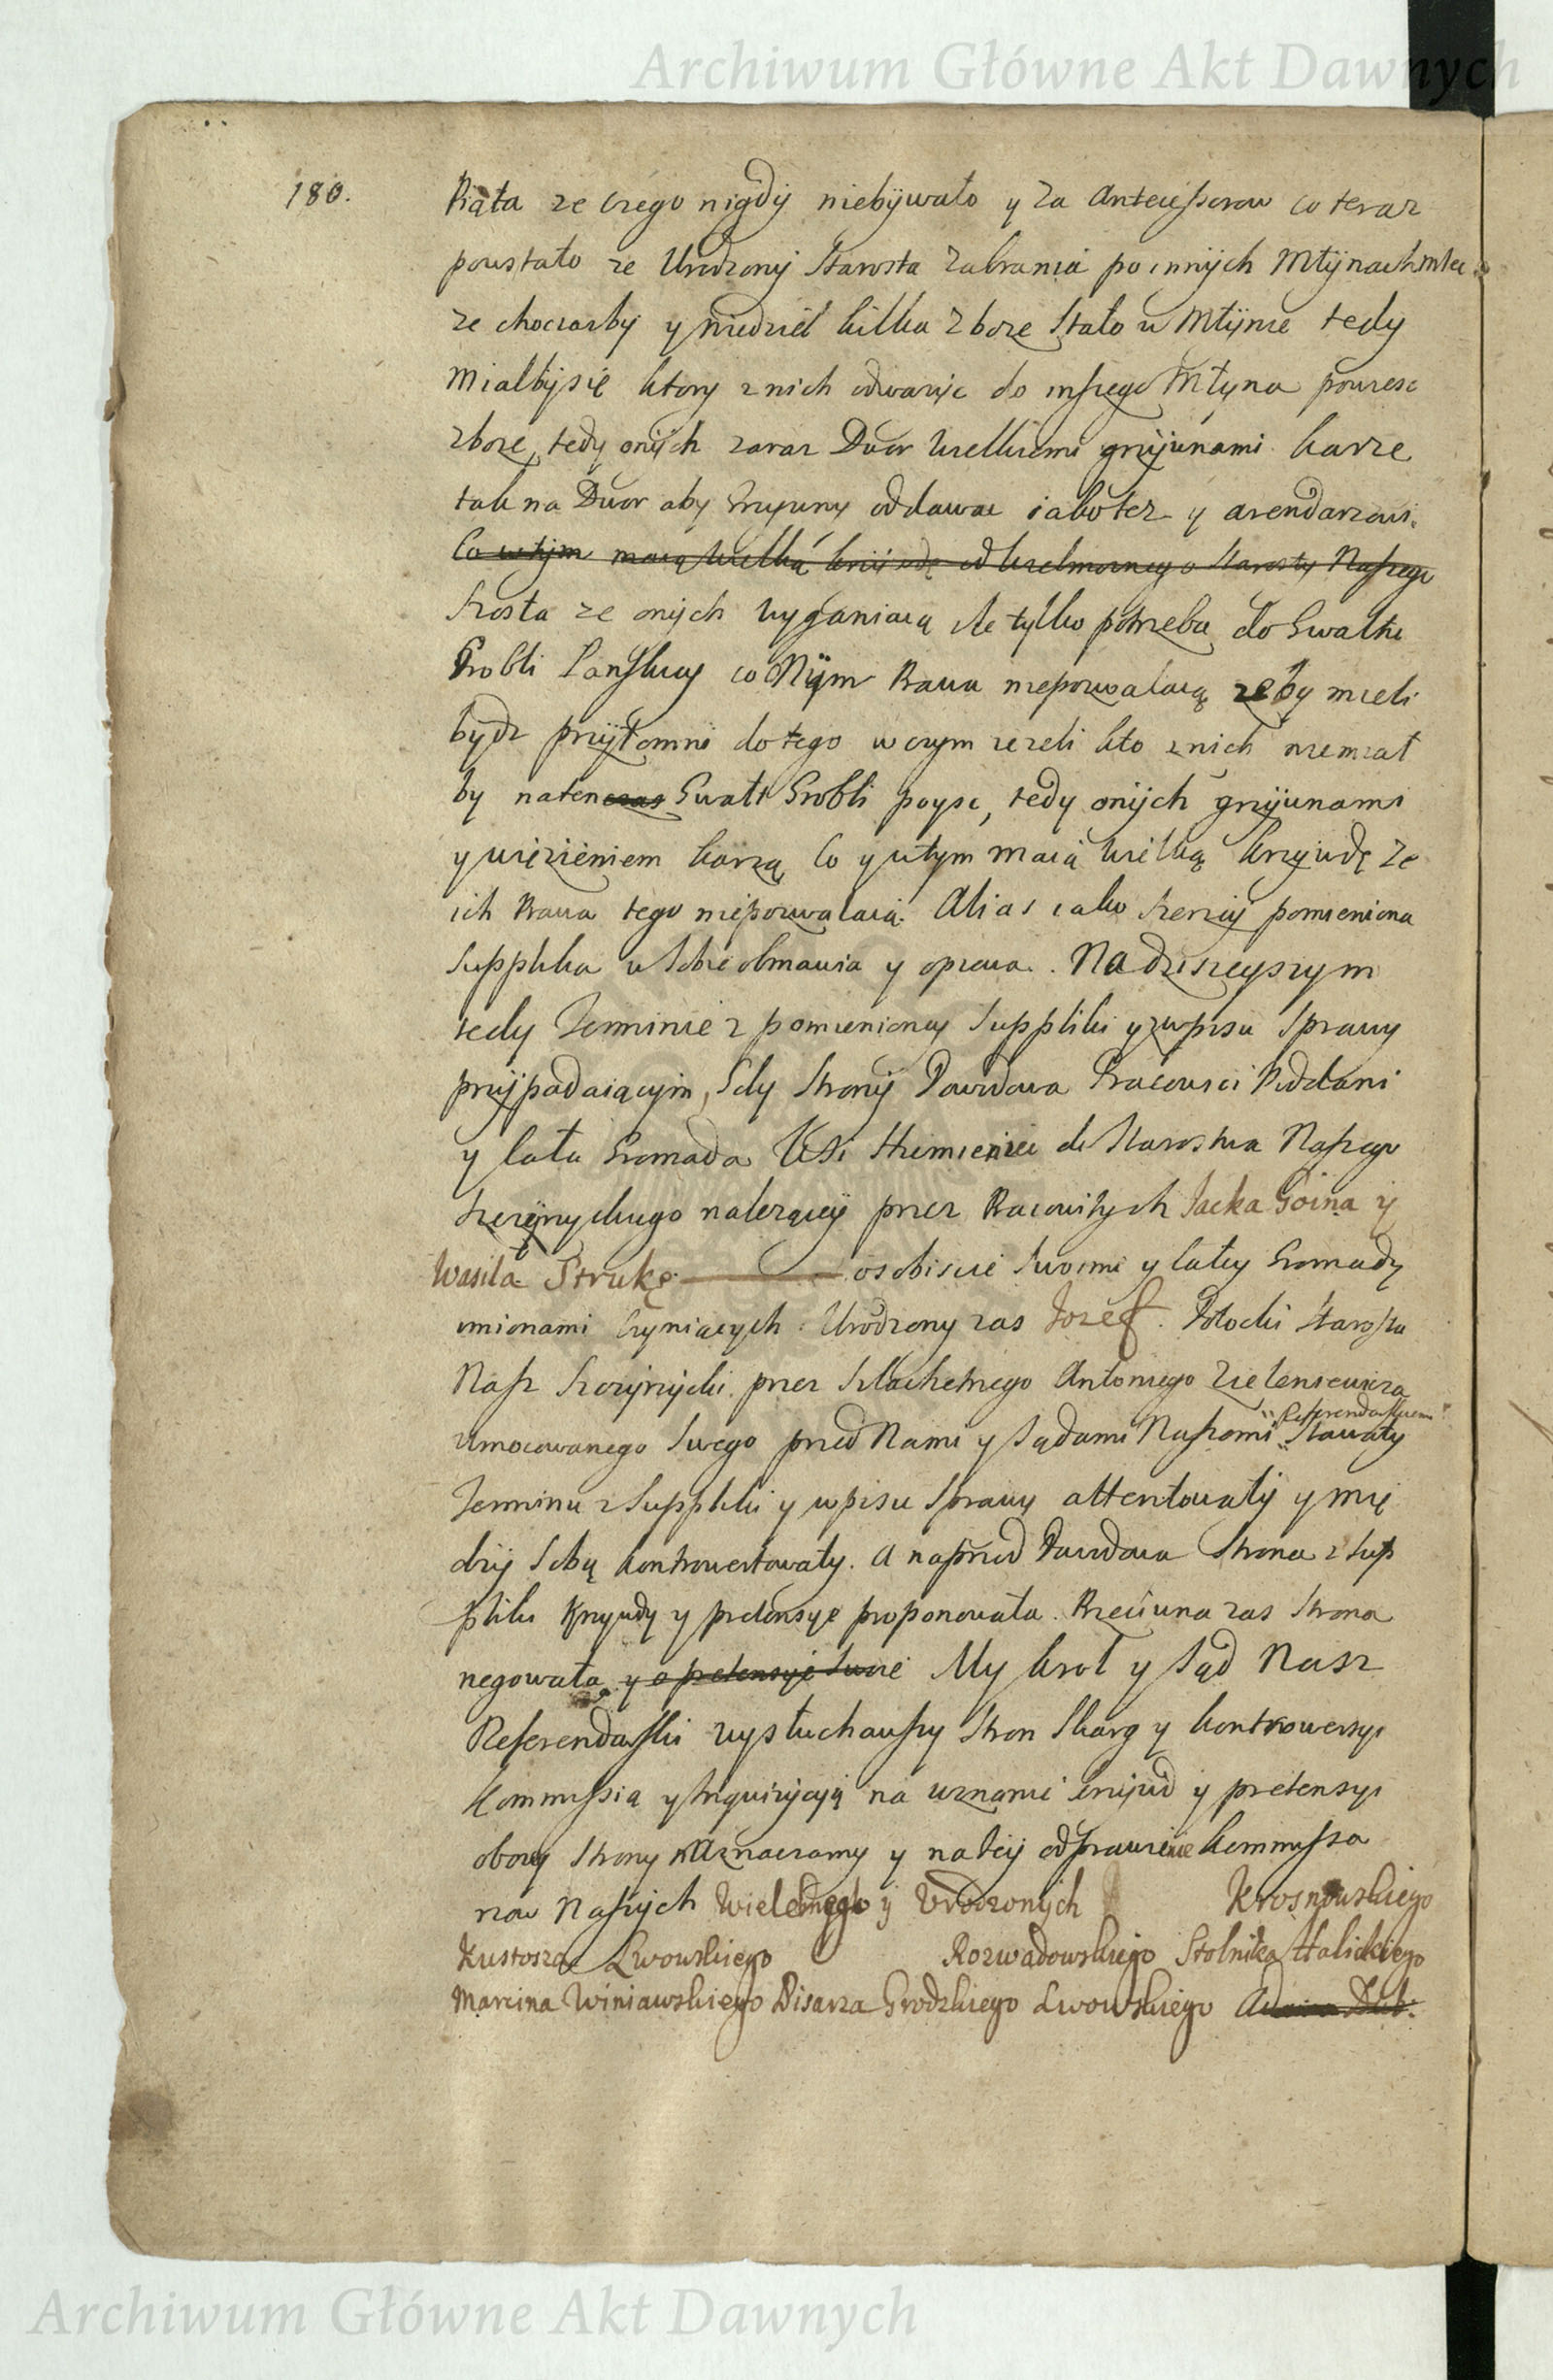 Archiwum Główne Akt Dawnych
180.
Piąta ze czego nigdÿ niebÿwało y za Antecessorow co teraz
powstało ze Urodzonÿ Starosta zabrania po innÿch Młÿnach mlec
ze chociarby y niedziel kilka zboze stało w Młÿnie tedy
Miałbÿ się ktory z nich odwazÿc do inszego Młyna powiesc
zboze, tedy onÿch zaraz Dwor wielkiemi grzÿwnami karze
tak na Dwor aby Grzywny oddawac iako tez y arendarzowi.
Co w tÿm maią wielką krzÿwdę od Wielmoznego Starosty Naszego
Szosta ze onÿch wyganiaią ile tylko potrzeba do Gwałtu
Grobli Panskiey co Nÿm Prawa niepozwalaią zeby mieli
bydz przÿtomni do tego w czym iezeli kto z nich niemiał
by natenczas Gwałt Grobli poysc, tedy onÿch grzÿwnami
y więzieniem karzą Co y w tym maią wielką krzywdę ze
ich Prawa tego niepozwalaią. Alias iako szerzej pomieniona
Supplika w sobie obmawia y opiewa. Na dzisieyszym
tedy Terminie z pomienioney Suppliki y z wpisu Sprawy
przÿpadaiącym, Gdy Stronÿ Powodowa Pracowici Poddani
y cała Gromada Wsi do Starostwa Naszego
nalezącej przez Pracowitych Jacka Goina ÿ
Wasila Strukę osobiscie Swoimi y całey Gromady
imionami czyniących. Urodzony zas Jozef Potocki Starosta
Nasz przez Szlachetnego Antoniego Zielensiewicza
Umocowanego Swego przed Nami y Sądami Naszemi Referendarskiemi Stawały
Terminu z Suppliki y wpisu Sprawy attentowałÿ y mię
dzÿ Sobą kontrowertowały. A naprzod Powodowa Strona z Sup
pliki Krzywdy y pretensye proponowała. Przeciwna zas Strona
negowała y o pretensyje swoie My Krol y Sąd Nasz
Referendarski wysłuchawszy Stron Skarg y kontrowersyi
Kommissią y Inquizycyją na uznanie krzÿwd y pretensyi
oboiey Strony Naznaczamy y na teÿ odprawienie Kommissa
rzow Naszÿch Wielebnego ÿ Urodzonÿch Krosnowskiego
Kustosza Lwowskiego Rozwadowskiego Stolnika Halickiego
Marcina Winiawskiego Pisarza Grodzkiego Lwowskiego
Archiwum Główne Akt Dawnych